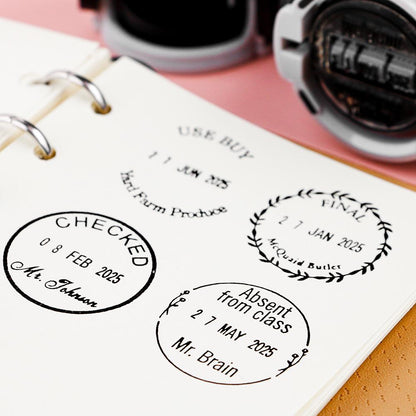 USE BUY
11 JUN 2025
Hard Farm Produce
FINAL
27 JAN 2025
McQuaid Butler
CHECKED
08 FEB 2025
Mr. Johnson
Absent
from class
27 MAY 2025
Mr. Brain